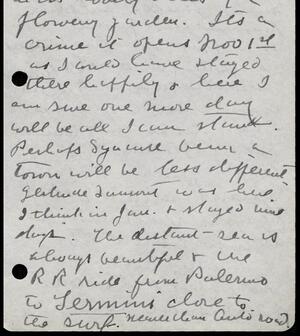 flowery garden. Its a
crime it opens Nov 1st
as I could have stayed
there happily & here I
am sure one more day
will be all I can stand.
Perhaps Syracuse being a
town will be less different
Gertrude was here
I think in Jan. & stayed nine
days. The distant sea is
always beautiful & the
R R ride from Palermo
to Termini close to
the surf. nearer than auto road